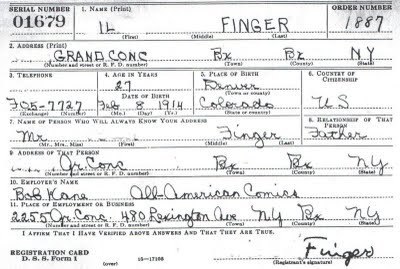 SERIAL NUMBER 1. NAME (Print) ORDER NUMBER
01679 IL FINGER 1887
(First) (Middle) (Last)
2. ADDRESS (Print)
GRAND CONC Bx Bx NY
(Number and street or R. F. D. number) (Town) (County) (State)
3. TELEPHONE 4. AGE IN YEARS 5. PLACE OF BIRTH 6. COUNTRY OF CITIZENSHIP
27 Denver
DATE OF BIRTH (Town or county)
FO5-7727 Feb 8 1914 Colorado U S
(Exchange) (Number) (Mo.) (Day) (Yr.) (State or country)
7. NAME OF PERSON WHO WILL ALWAYS KNOW YOUR ADDRESS 8. RELATIONSHIP OF THAT PERSON
Mr. Finger Father
(Mr., Mrs., Miss) (First) (Middle) (Last)
9. ADDRESS OF THAT PERSON
Gr Conc Bx Bx NY
(Number and street or R. F. D. number) (Town) (County) (State)
10. EMPLOYER'S NAME
Bob Kane All-American Comics
11. PLACE OF EMPLOYMENT OR BUSINESS
2255 Gr. Conc 480 Lexington Ave NY Bx NY
(Number and street or R. F. D. number) (Town) (County) (State)
I AFFIRM THAT I HAVE VERIFIED ABOVE ANSWERS AND THAT THEY ARE TRUE.
Finger
REGISTRATION CARD
D. S. S. Form 1 (over) 16—17105 (Registrant's signature)